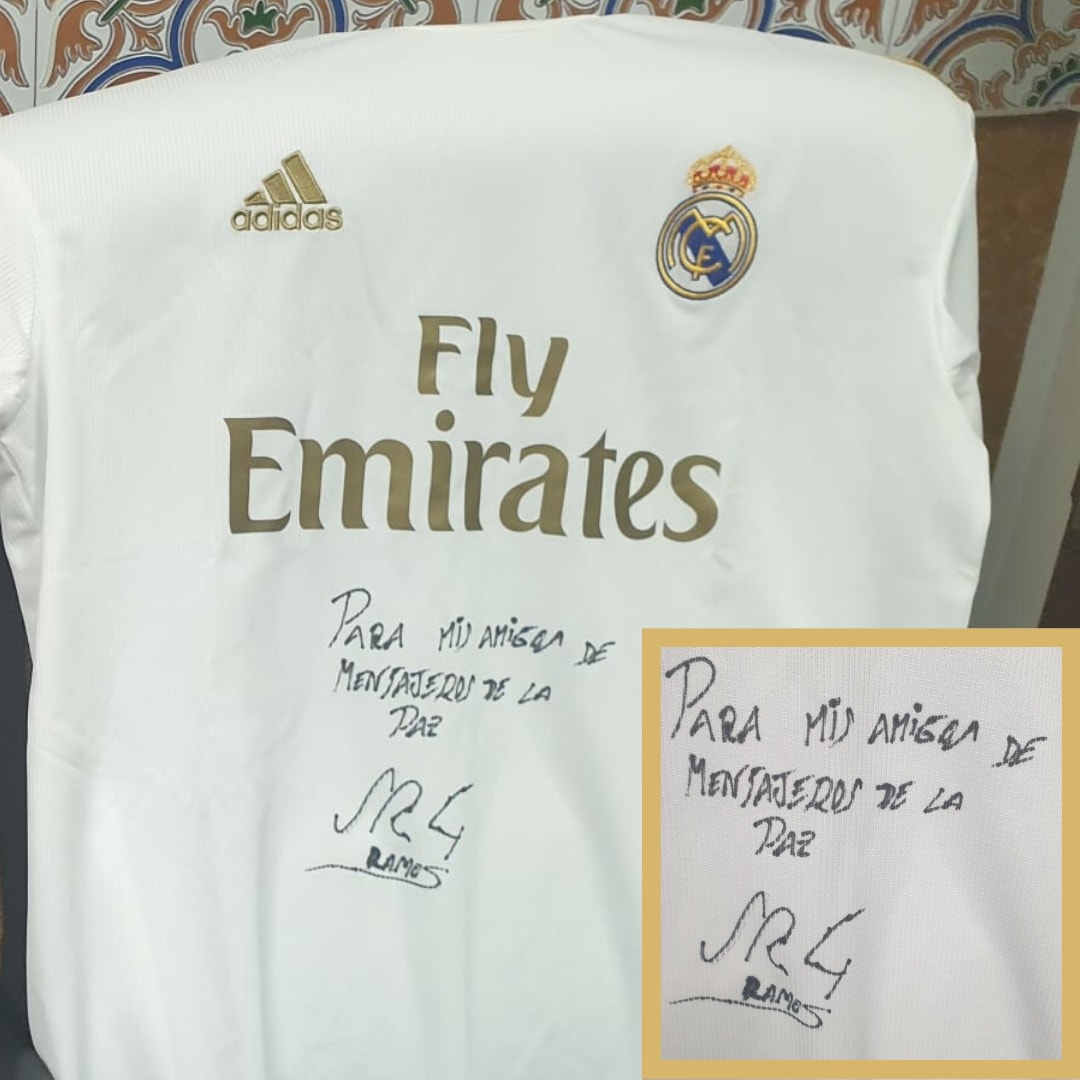 adidas
Fly
Emirates
PARA MIS AMIGOS DE
MENSAJEROS DE LA
PAZ
SR4
RAMOS
PARA MIS AMIGOS DE
MENSAJEROS DE LA
PAZ
SR4
RAMOS